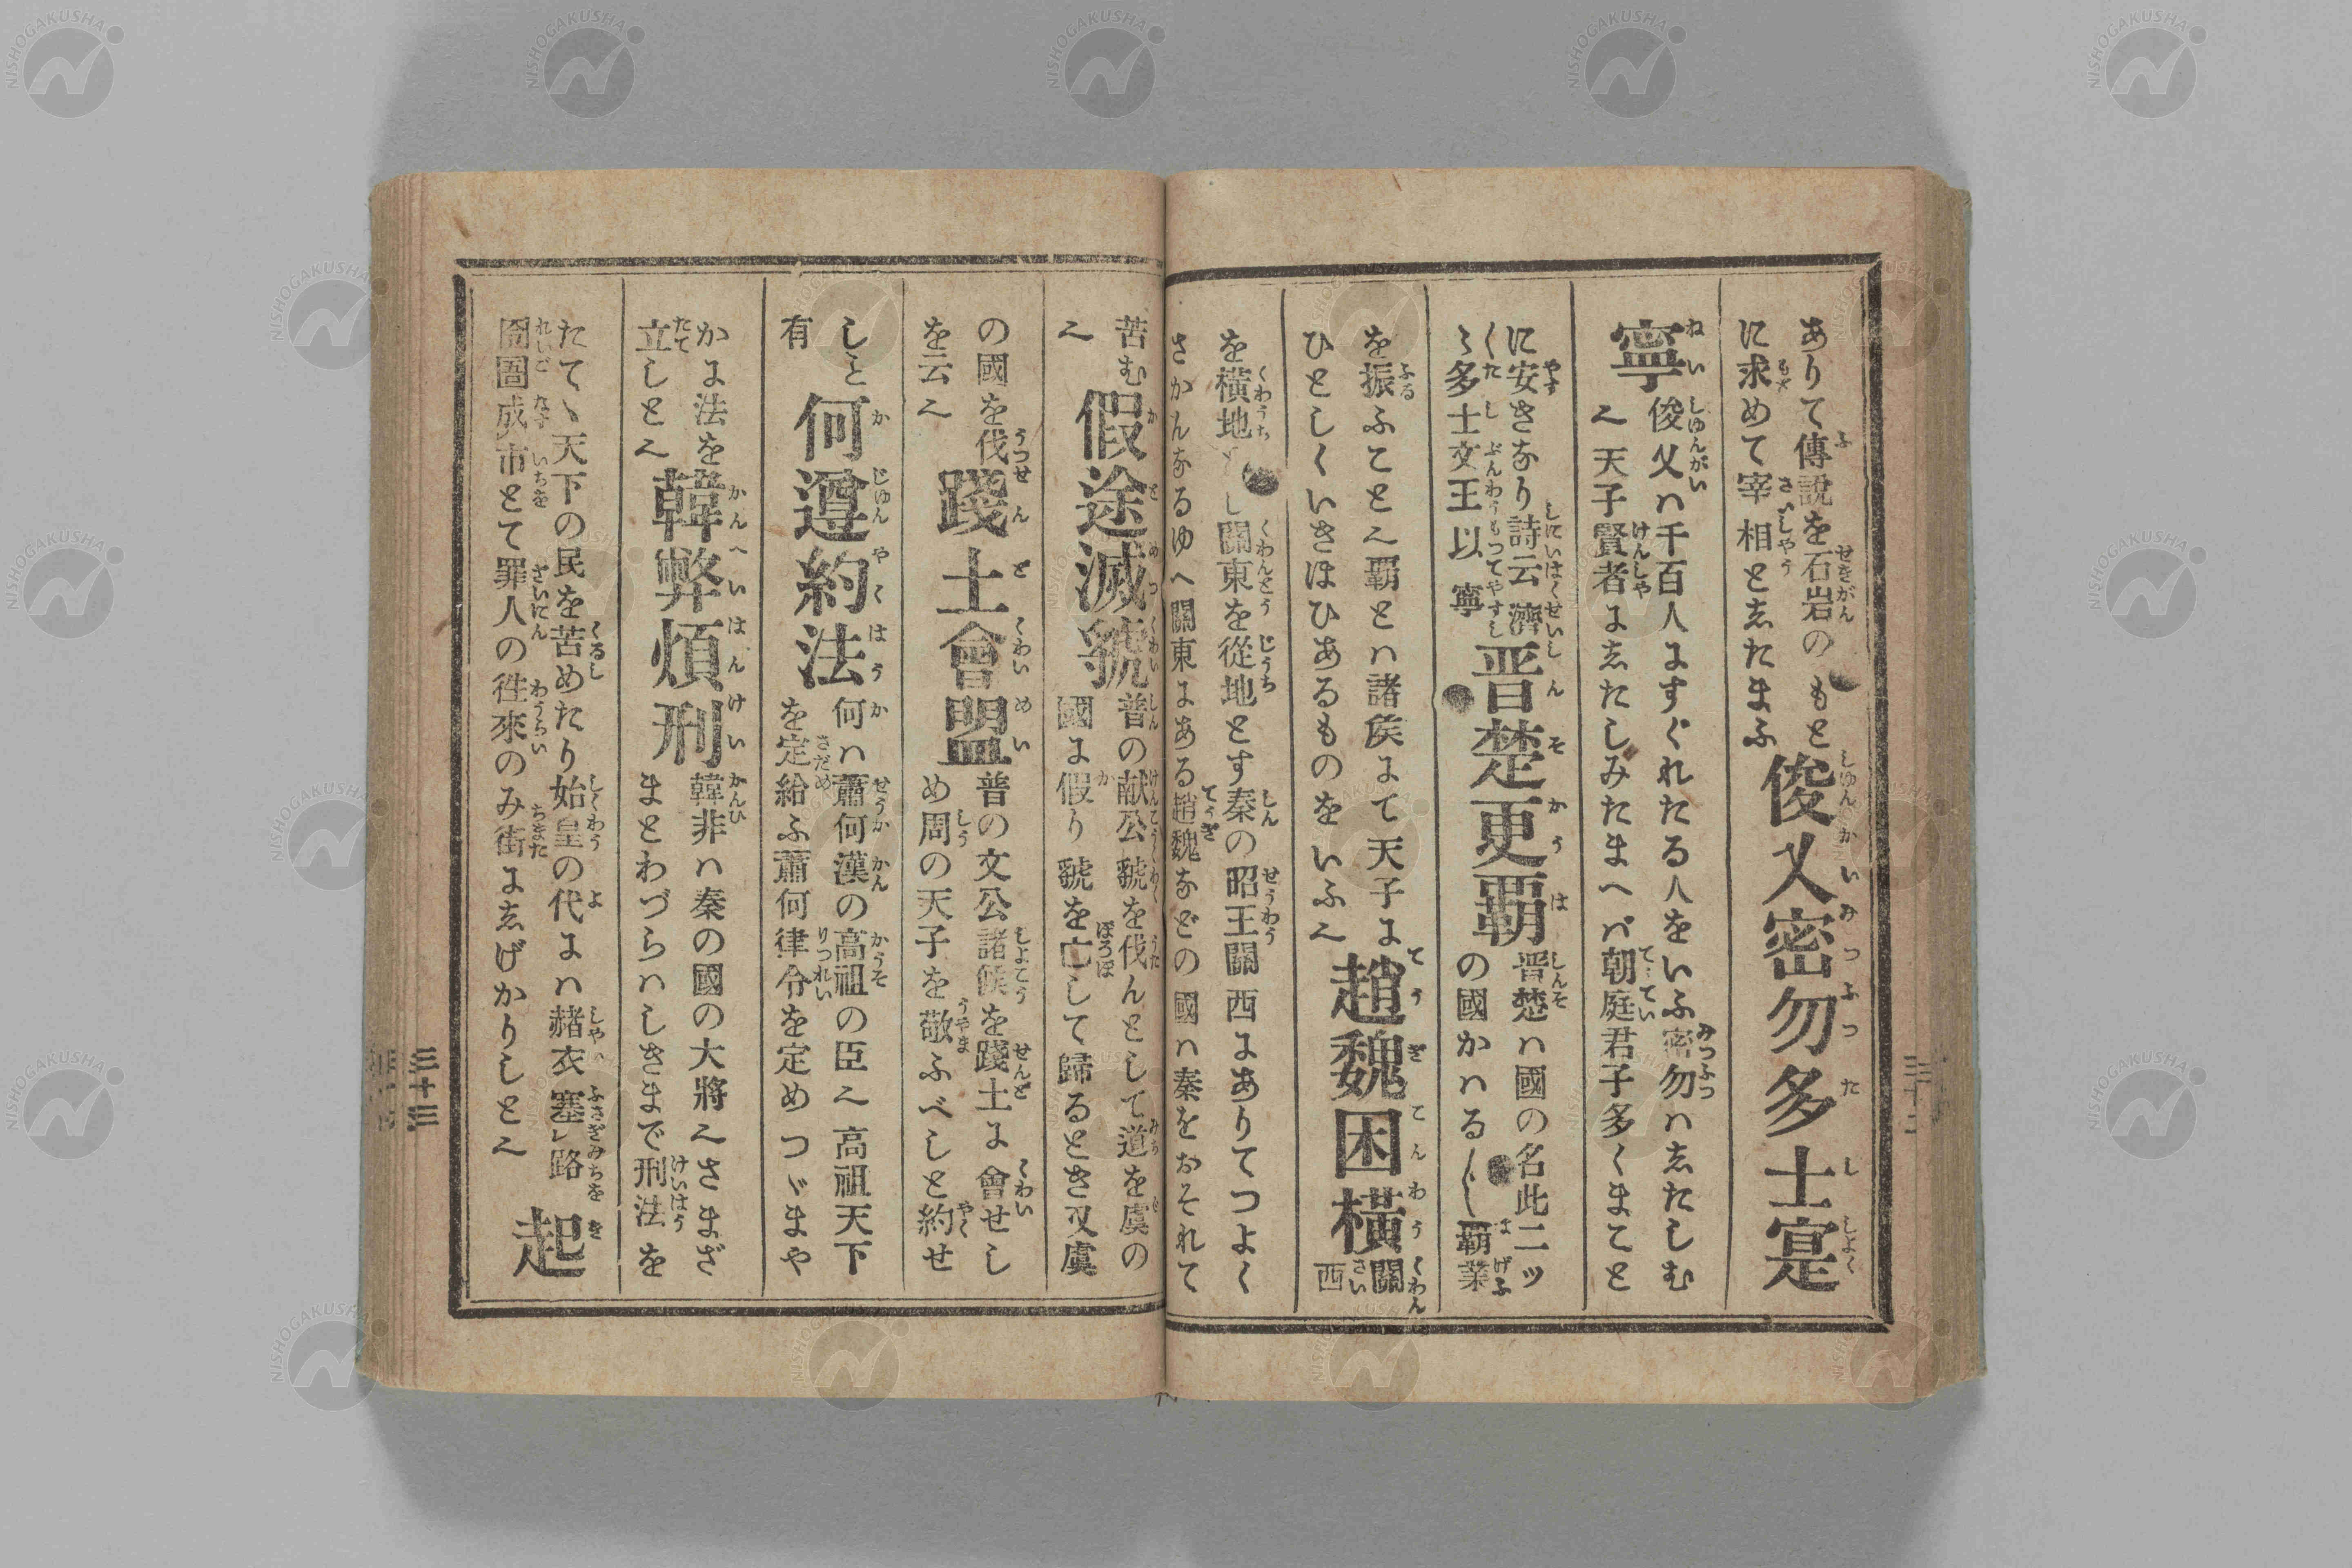 ありて傳説を石岩のもと
に求めて宰相とゑたまふ
俊乂密勿多士寔
寧
俊乂ハ千百人ますぐれたる人をいふ密勿ハゑたしむ
也天子賢者まゑたしみたまへバ朝庭君子多くまこと
に安きなり詩云濟
〳〵多士文王以寧
晋楚更覇
晋楚ハ國の名此二ッ
の國かハる〳〵覇業
を振ふこと也覇とハ諸侯まて天子ま
ひとしくいきほひあるものをいふ也
趙魏困橫
關
西
を橫地とし關東を從地とす秦の昭王關西まありてつよく
さかんなるゆへ關東まある趙魏などの國ハ秦をおそれて
苦む
也
假途滅虢
普の献公虢を伐んとして道を虞の
國ま假り虢を亡して歸るとき又虞
の國を伐
を云也
踐土會盟
普の文公諸侯を踐土ま會せし
め周の天子を敬ふべしと約せ
しと
有
何遵約法
何ハ蕭何漢の高祖の臣也高祖天下
を定給ふ蕭何律令を定めつゞまや
かま法を
立しと也
韓弊煩刑
韓非ハ秦の國の大將也さまざ
まとわづらハしきまで刑法を
たてヽ天下の民を苦めたり始皇の代まハ赭衣塞レ路
囹圄成市とて罪人の徃來のみ街まゑげかりしと也
起
三十三